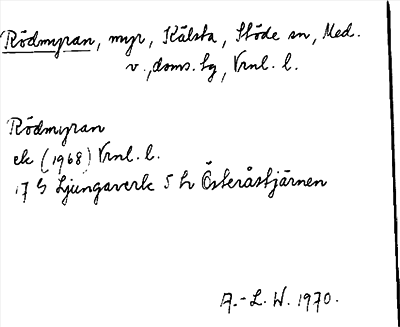 Rödmyran, myr, Kälsta, Stöde sn, Med.
v., doms. bg, Vrnl. l.
Rödmyran
ek (1968) Vrnl. l.
17 G Ljungaverk 5 h Österåstjärnen
A.-L. W. 1970.